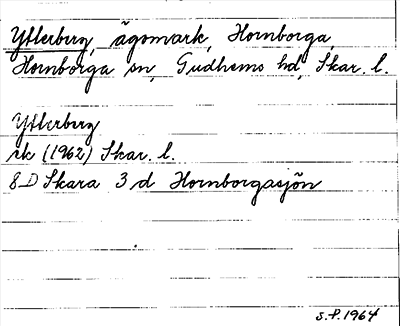 Ytterberg, ägomark, Hornborga,
Hornborga sn, Gudhems hd, Skar. l.
Ytterberg
ek (1962) Skar. l.
8D Skara 3 d Hornborgasjön
S.P. 1964